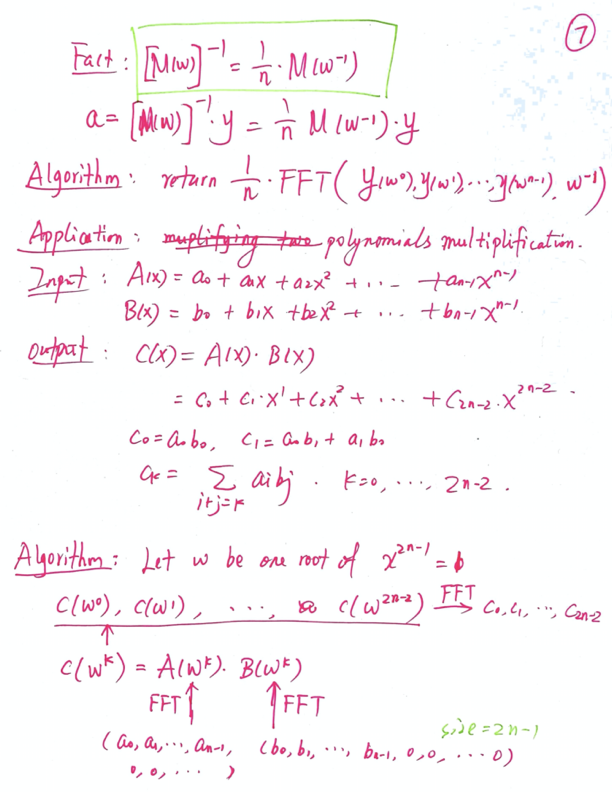 7
Fact: [M(w)]⁻¹ = 1/n · M(w⁻¹)
a = [M(w)]⁻¹ · y = 1/n M(w⁻¹) · y
Algorithm: return 1/n · FFT( y(w⁰), y(w¹), ..., y(wⁿ⁻¹), w⁻¹)
Application: muplifying two polynomials multiplification.
Input: A(x) = a₀ + a₁x + a₂x² + ... + aₙ₋₁xⁿ⁻¹
B(x) = b₀ + b₁x + b₂x² + ... + bₙ₋₁xⁿ⁻¹
Output: C(x) = A(x) · B(x)
= c₀ + c₁·x¹ + c₂x² + ... + c₂ₙ₋₂·x²ⁿ⁻² .
c₀ = a₀b₀, c₁ = a₀b₁ + a₁b₀
cₖ = Σ i+j=k aᵢbⱼ . k=0, ..., 2n-2 .
Algorithm: Let w be one root of x²ⁿ⁻¹ =
C(w⁰), C(w¹), ..., C(w²ⁿ⁻²) FFT→ c₀, c₁, ..., c₂ₙ₋₂
↑
C(wᵏ) = A(wᵏ) · B(wᵏ)
FFT↑ ↑FFT
size = 2n-1
(a₀, a₁, ..., aₙ₋₁, (b₀, b₁, ..., bₙ₋₁, 0, 0, ... 0)
0, 0, ... )